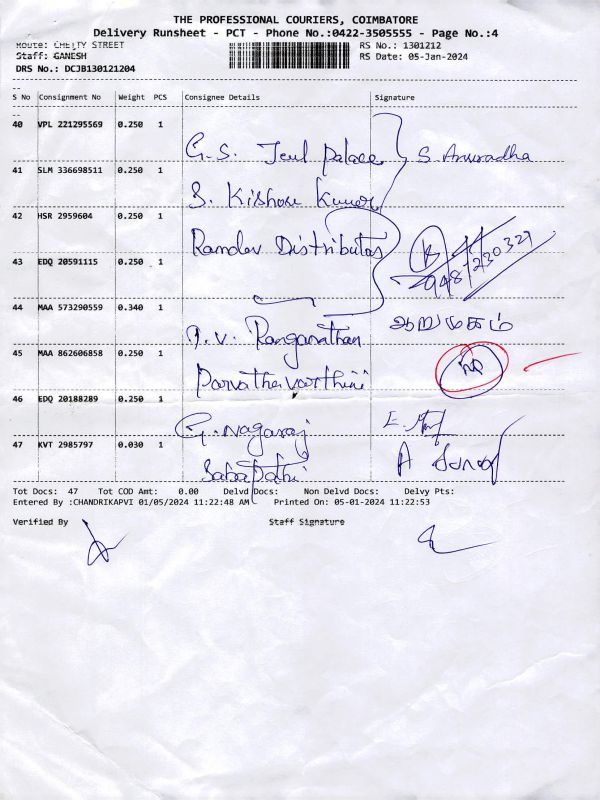 THE PROFESSIONAL COURIERS, COIMBATORE
Delivery Runsheet - PCT - Phone No.:0422-3505555 - Page No.:4
Route: CHETTY STREET RS No.: 1301212
Staff: GANESH RS Date: 05-Jan-2024
DRS No.: DCJB130121204
S No Consignment No Weight PCS Consignee Details Signature
40 VPL 221295569 0.250 1
G. S. Jeul Palace S. Anuradha
41 SLM 336698511 0.250 1
S. Kishore Kumar
42 HSR 2959604 0.250 1
Ramdev Distributor
43 EDQ 20591115 0.250 1
44 MAA 573290559 0.340 1
ஆறுமுகம்
Ranganathan
45 MAA 862606858 0.250 1
NR
Parvathavarthini
46 EDQ 20188289 0.250 1
G. Nagaraj E.
47 KVT 2985797 0.030 1
Sabapathi A
Tot Docs: 47 Tot COD Amt: 0.00 Delvd Docs: Non Delvd Docs: Delvy Pts:
Entered By :CHANDRIKAPVI 01/05/2024 11:22:48 AM Printed On: 05-01-2024 11:22:53
Verified By Staff Signature